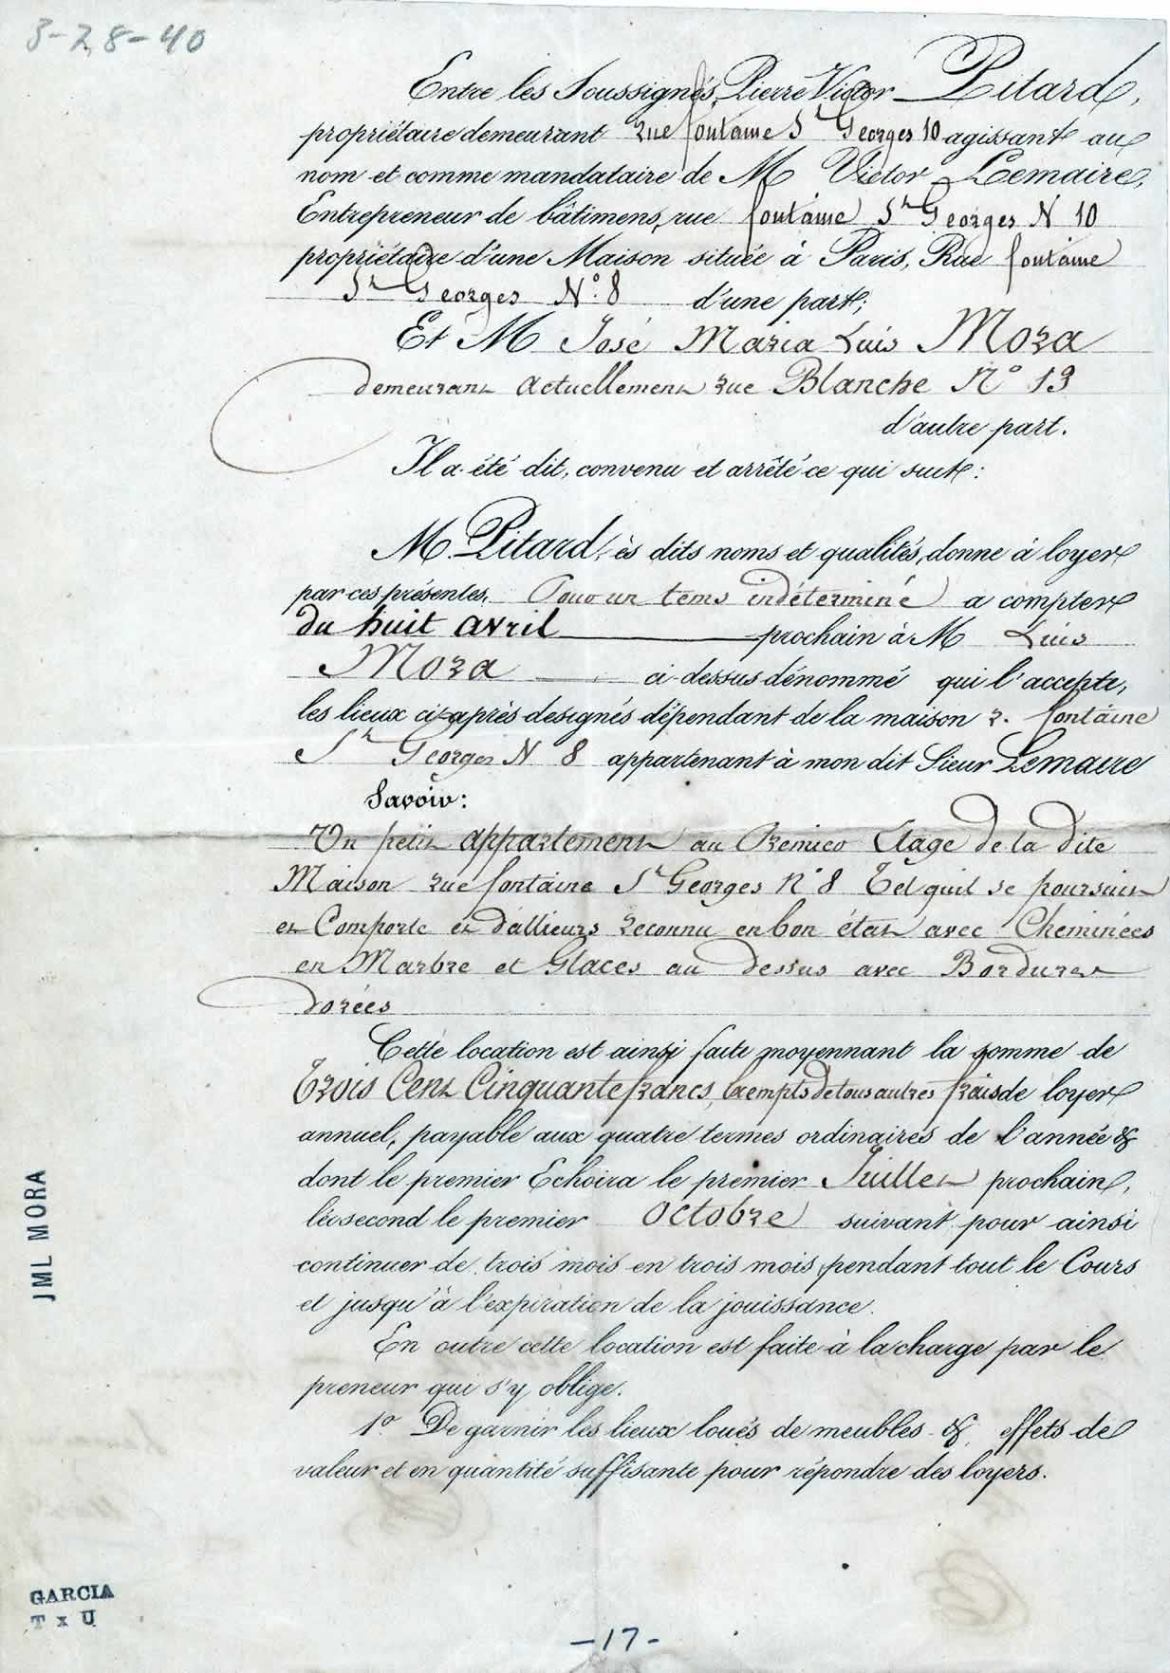 3-28-40
Entre les Soussignés, Pierre Victor Pitard,
propriétaire demeurant rue fontaine St Georges 10 agissant au
nom et comme mandataire de M Victor Lemaire,
Entrepreneur de bâtimens, rue fontaine St Georges N 10
propriétaire d'une Maison située à Paris, Rue fontaine
St Georges N° 8 d'une part;
Et M José Maria Luis Mora
demeurant actuellement rue Blanche N° 13
d'autre part.
Il a été dit, convenu et arrêté ce qui suit:
M. Pitard, ès dits noms et qualités, donne à loyer
par ces présentes, Pour un tems indéterminé a compter
du huit avril prochain à M Luis
Mora ci-dessus dénommé qui l'accepte,
les lieux ci-après designés dépendant de la maison r. fontaine
St Georges N 8 appartenant à mon dit Sieur Lemaire
Savoir:
Un petit appartement au Premier Etage de la dite
Maison rue fontaine St Georges N° 8 Tel quil se poursuit
et Comporte et d'allieurs reconnu en bon état avec Cheminées
en Marbre et Glaces au dessus avec Bordures
dorées
Cette location est ainsi faite moyennant la somme de
Trois Cent Cinquante francs, Exempts de tous autres frais de loyer
annuel, payable aux quatre termes ordinaires de l'année &
dont le premier Echoira le premier Juillet prochain,
le second le premier octobre suivant pour ainsi
continuer de trois mois en trois mois, pendant tout le Cours
et jusqu'à l'expiration de la jouissance.
En outre cette location est faite à la charge par le
preneur qui s'y oblige.
1° De garnir les lieux loués de meubles & effets de
valeur et en quantité suffisante pour répondre des loyers.
JML MORA
GARCIA
T x U
-17-